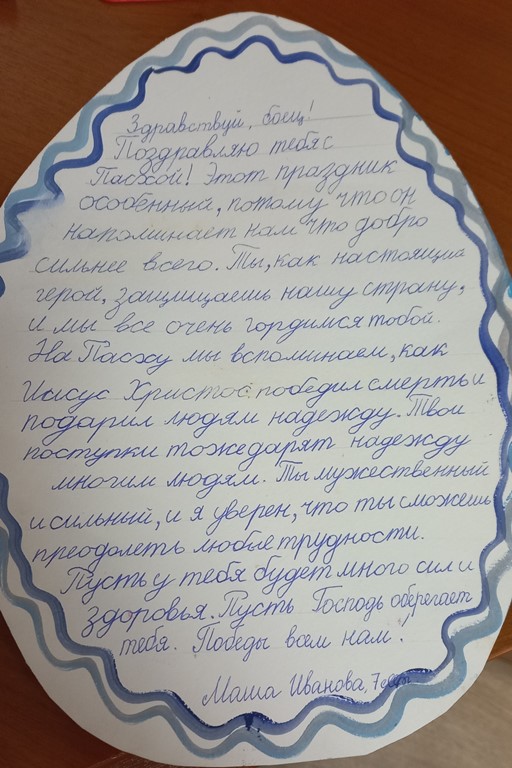 Здравствуй, боец!
Поздравляю тебя с
Пасхой! Этот праздник
особенный, потому что он
напоминает нам что добро
сильнее всего. Ты, как настоящий
герой, защищаешь нашу страну,
и мы все очень гордимся тобой.
На Пасху мы вспоминаем, как
Иисус Христос победил смерть и
подарил людям надежду. Твои
поступки тоже дарят надежду
многим людям. Ты мужественный
и сильный, и я уверен, что ты сможешь
преодолеть любые трудности.
Пусть у тебя будет много сил и
здоровья. Пусть Господь оберегает
тебя. Победы всем нам.
Маша Иванова, 7